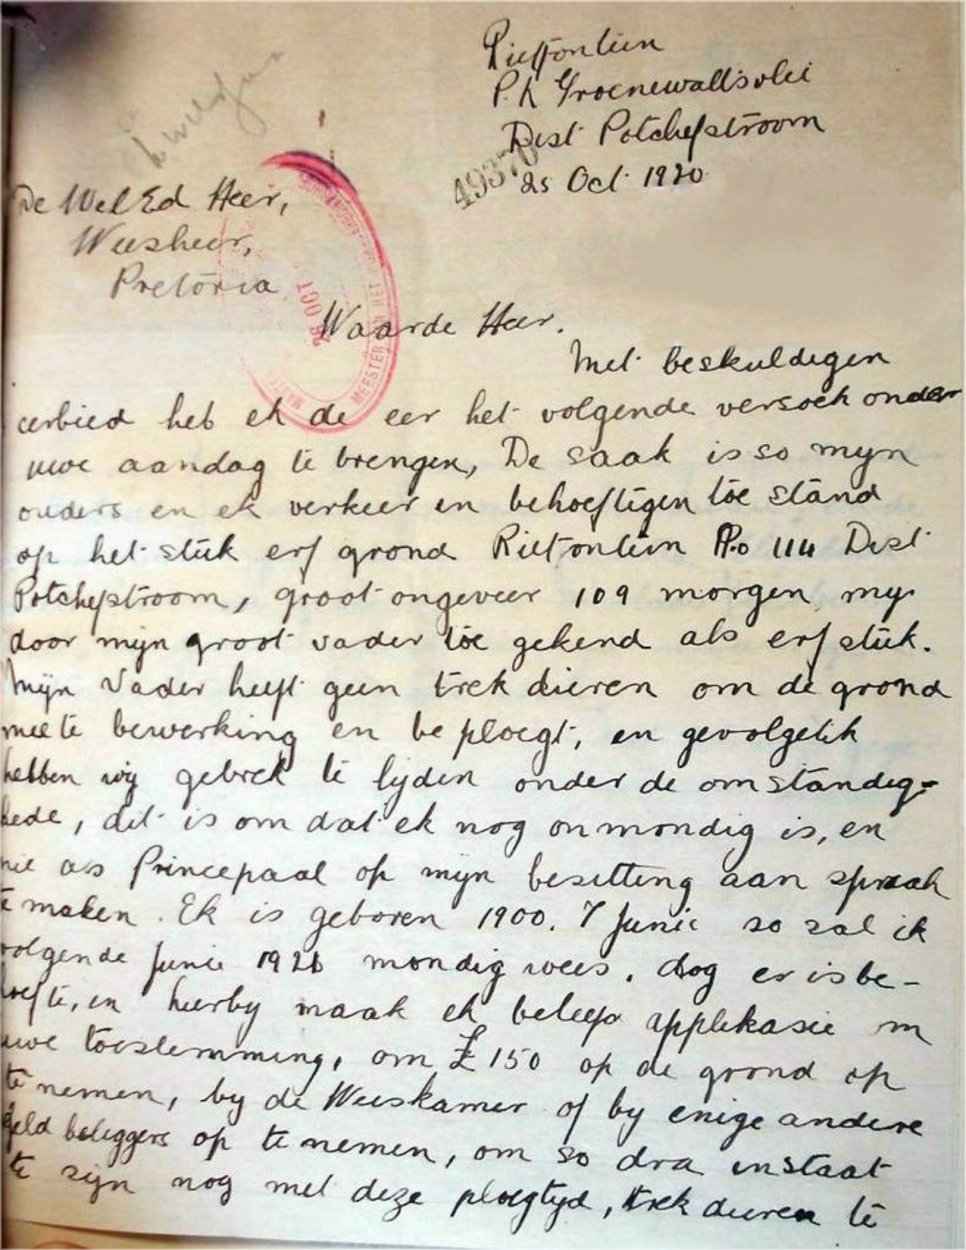 Rietfontein
P.k Groenewaltsvlei
Dist Potchefstroom
49370
25 Oct 1920
De Wel Ed Heer,
Weesheer,
Pretoria
26 OCT
MEESTER VAN HET
Waarde Heer.
Met beskuldigen
eerbied heb ek de eer het volgende versoek onder
uwe aandag te brengen, De saak is so mijn
ouders en ek verkeer in behoeftigen toe stand
op het stuk erf grond Rietfontein No 114 Dist
Potchefstroom, groot ongeveer 109 morgen my
door mijn groot vader toe gekend als erf stuk.
Mijn Vader heeft geen trek dieren om de grond
mee te bewerking en be ploegt, en gevolgelik
hebben wij gebrek te lijden onder de omstandig=
hede, dit is om dat ek nog onmondig is, en
nie as Princepaal op mijn besitting aan spraak
te maken. Ek is geboren 1900. 7 Junie so zal ik
volgende Junie 1921 mondig wees, dog er is be-
hoefte, en hierby maak ek beleep applikasie om
uwe toestemming, om £150 op de grond op
te nemen, by de Weeskamer of by enige andere
geld beleggers op te nemen, om so dra instaat
te zijn nog met deze ploegtyd, trek dieren te